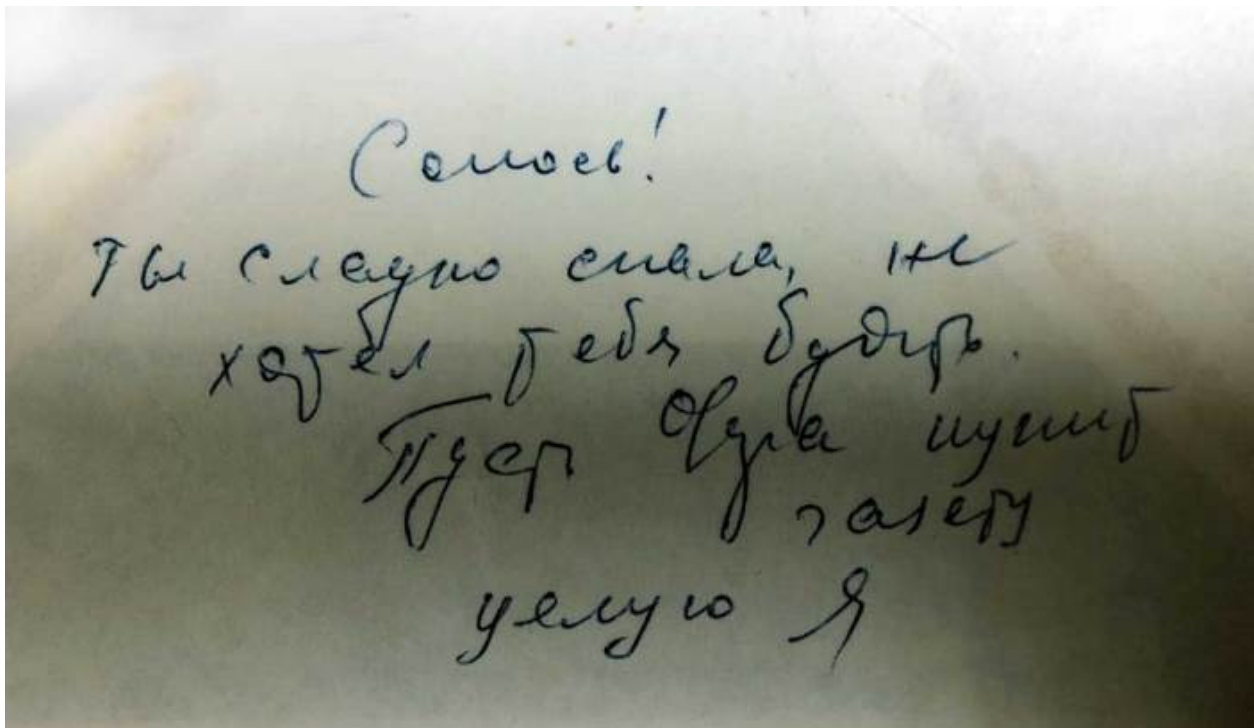 Ты сладко спала, не
хотел тебя будить.
Пусть купит
газету
целую Я